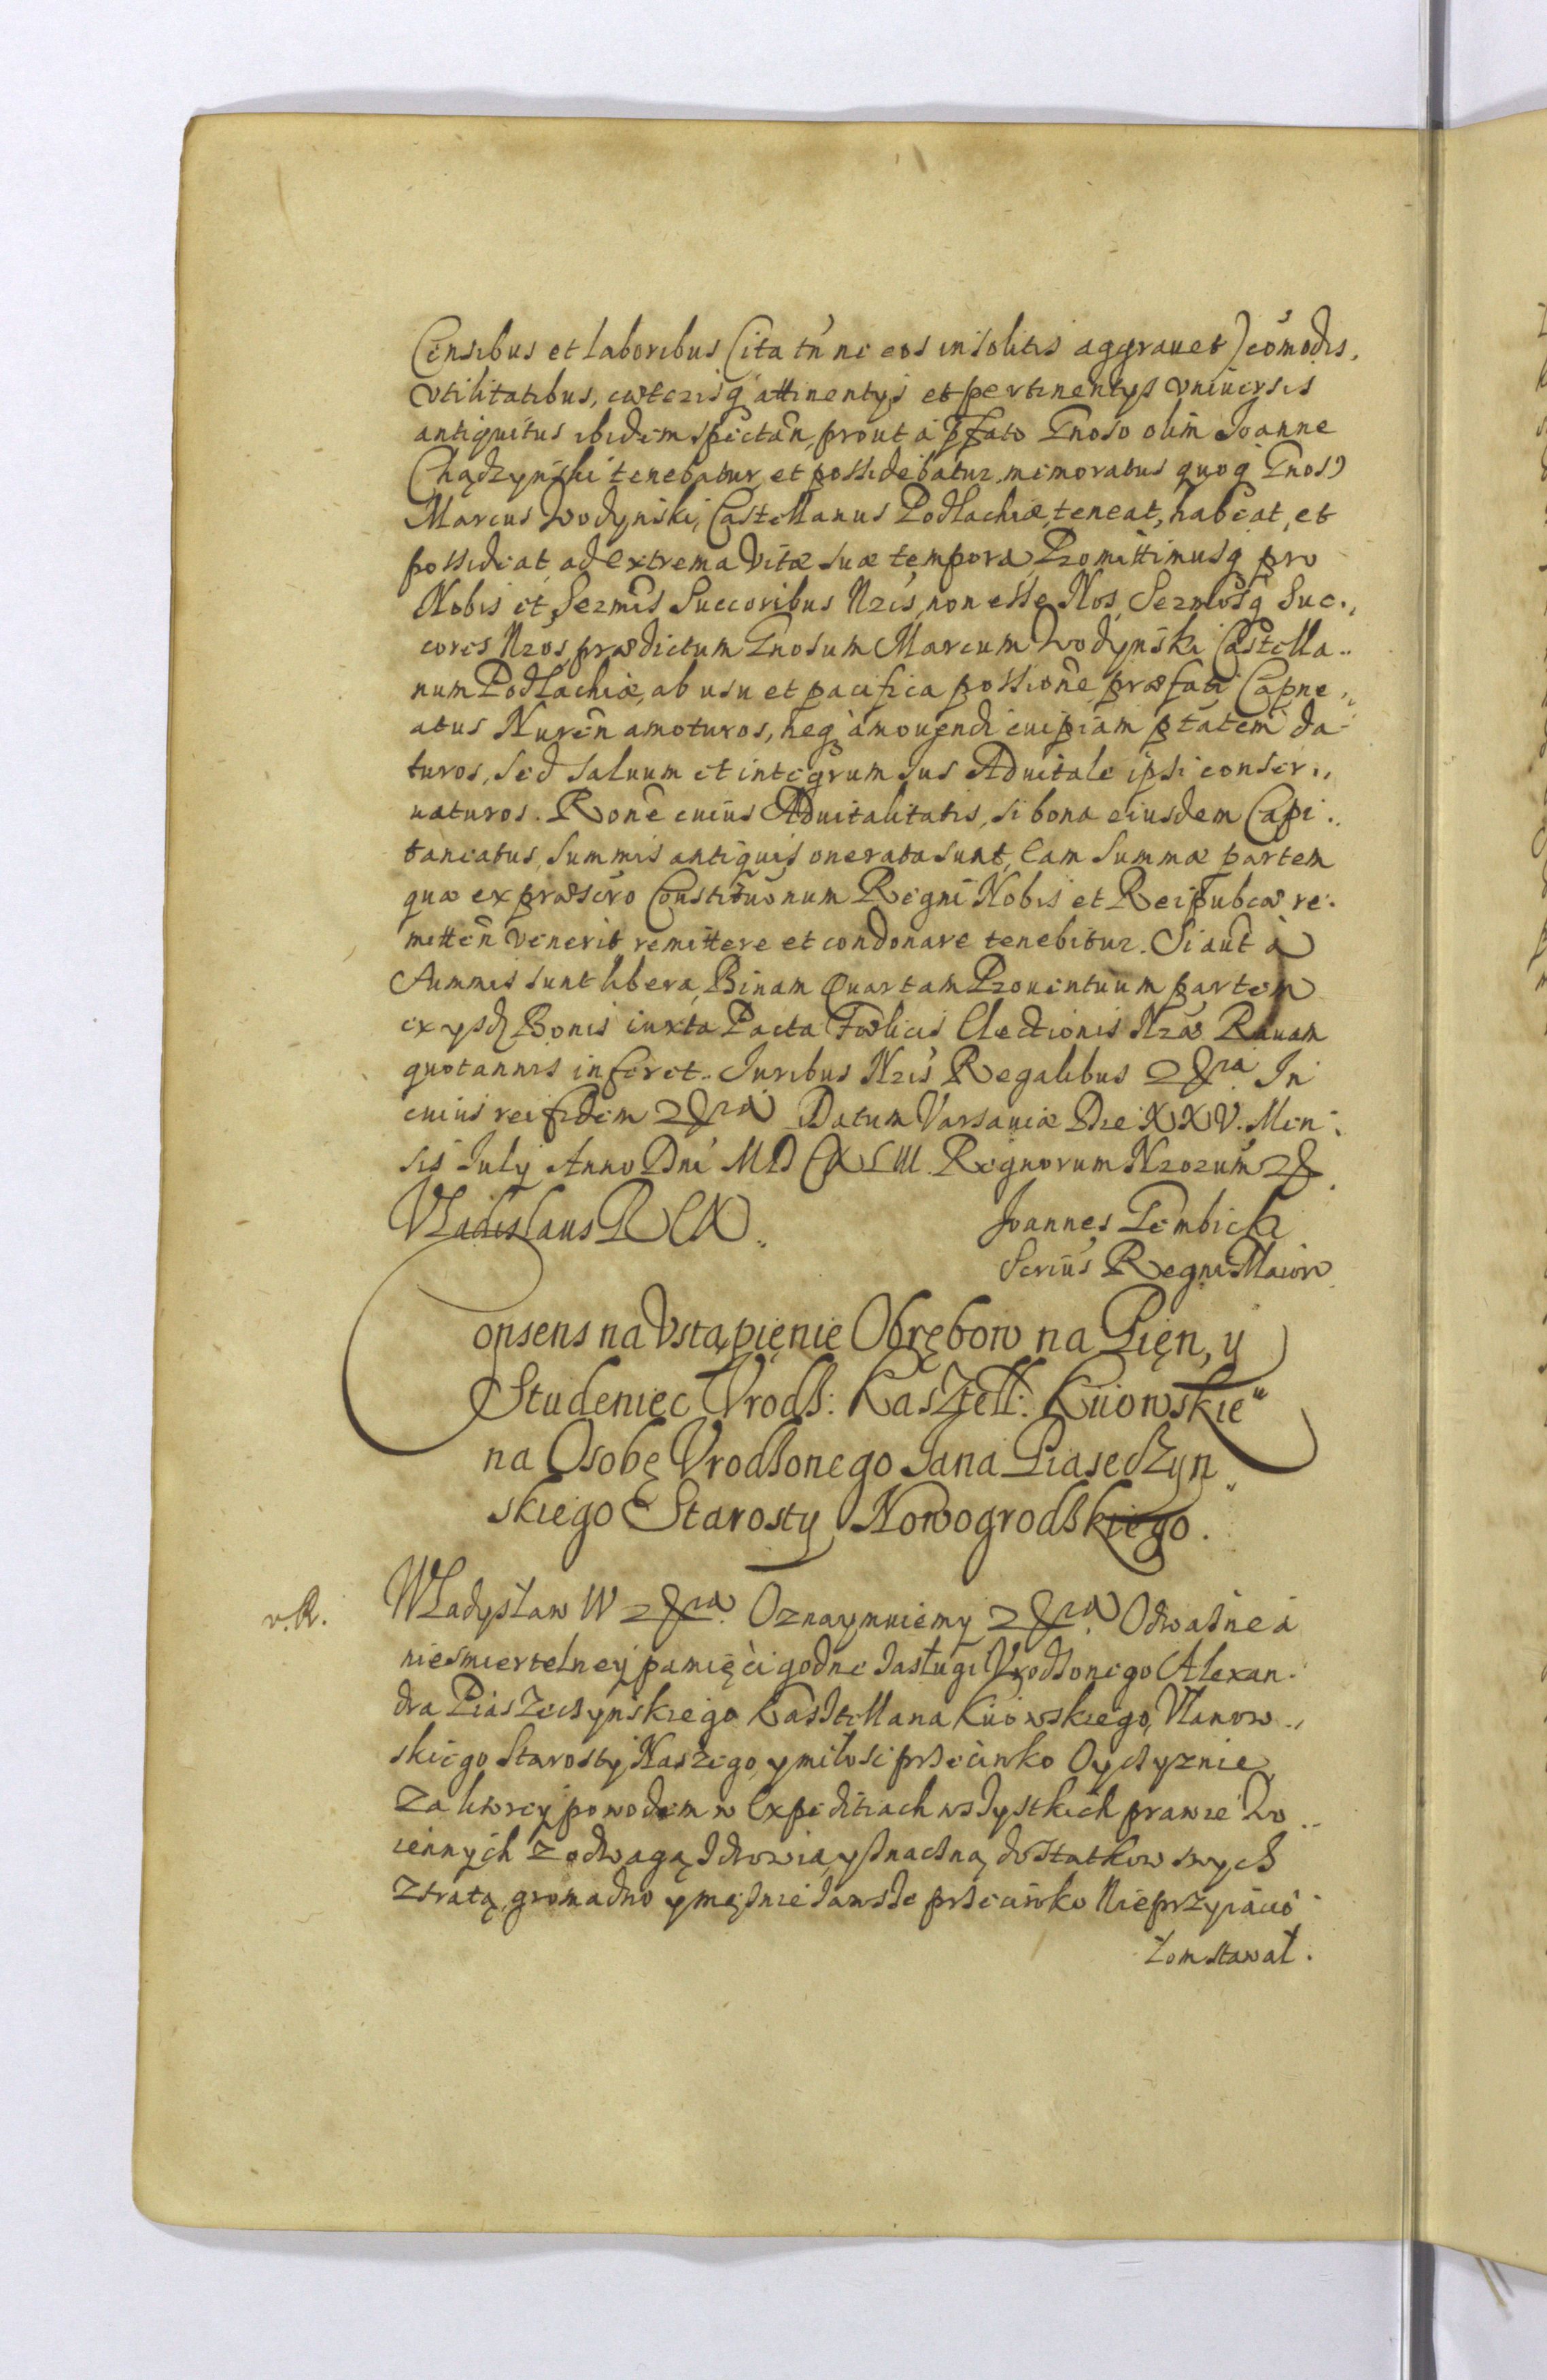 Censibus et laboribus (ita tn̄ ne eos insolitis aggrauet) com̄odis,
vtilitatibus, cæterisq attinentijs et pertinentijs vniuersis
antiquitus ibidem spectan̄, prout à p̄fato Gnoso olim Joanne
Chądzyński tenebatur et possidebatur, memoratus quoq Gnosꝰ
Marcus Wodyński, Castellanus Podlachiæ, teneat, habeat, et
possideat, ad extrema vitæ suæ tempora, Promittimusq pro
Nobis et Sermis Succoribus Nris, non esse Nos, Sermosq Suc.,
cores Nros, prædictum Gnosum Marcum Wodyński Castella..
num Podlachiæ, ab usu et pacifica possione præfati Capne.,
atus Nuren̄ amoturos, neq amouendi cuipiam ptatem da-
turos, sed saluum et integrum Jus Aduitale ipsi conser.,
uaturos. Rone cuius Aduitalitatis, si bona eiusdem Capi..
taneatus, summis antiquis onerata sunt, Eam summæ partem
quæ ex præscro Constituonum Regni Nobis et Reipubcæ re.
mitten̄ venerit remittere et condonare tenebitur. Si aut à
summis sunt libera, Binam Quartam Prouentuum partem
ex ysd Bonis iuxta Pacta Fœlicis Electionis Nræ Rauam
quotannis inferet.. Juribus Nris Regalibus &ra In
cuius rei fidem &ra Datum Varsauiæ Die XXV. Men.
sis July Anno Dni MDCXLIII. Regnorum Nrorum &.
Vladislaus REX.. Joannes Gembicki
Secrius Regni Maior
Consens na Vstąpienie Obrębow na Pięn, y
Studeniec Vrodz: Kasztell: Kiiowskie"
na Osobę Vrodzonego Jana Piaseczyn"
skiego Starosty Nowogrodzkiego.
v.R. Władysław IV &ra. Oznaymuiemy &ra. Odważne á
nieśmiertelney pamięći godne zasługi Vrodzonego Alexan.
dra Piaszeczyńskiego Kasztellana Kiiowskiego, Vlanow.,
skiego Starosty Naszego, y miłośc przećiwko Oyczyznie
za ktorey powodem w Expeditiach wszystkich prawie Wo..
iennych z odwagą zdrowia, y znaczną dostatkow swych
ztratą, gromadno y mężnie zawsze przećiwko Nieprzyiaćio
łom stawał.